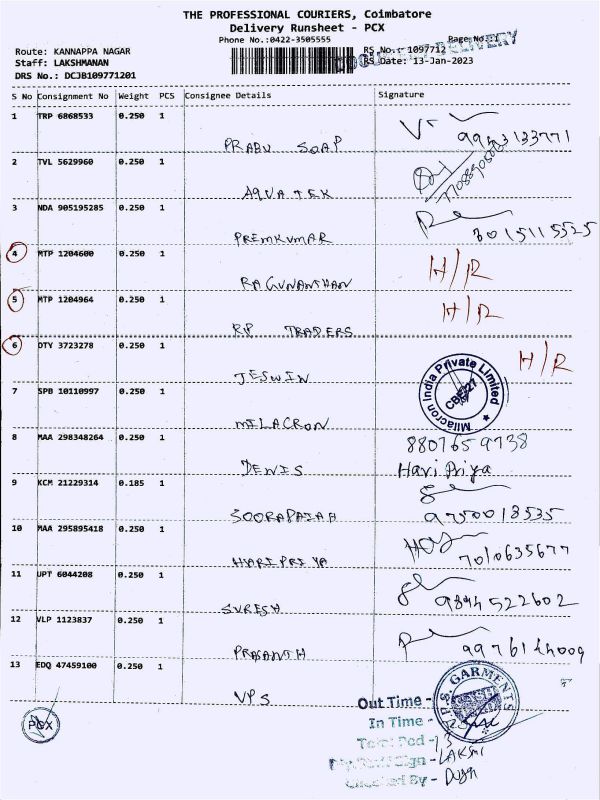 THE PROFESSIONAL COURIERS, Coimbatore
Delivery Runsheet - PCX
Phone No.:0422-3505555 Page No.:1
DELIVERY
Route: KANNAPPA NAGAR RS No.: 1097712
Staff: LAKSHMANAN RS Date: 13-Jan-2023
DRS No.: DCJB109771201
S No Consignment No Weight PCS Consignee Details Signature
1 TRP 6868533 0.250 1
PRABU SOAP
2 TVL 5629960 0.250 1
AQUA TEK
3 NDA 905195285 0.250 1
PREMKUMAR
4 MTP 1204600 0.250 1 H/R
RAGUNANTHAN
5 MTP 1204964 0.250 1 H/R
RP TRADERS
6 DTY 3723278 0.250 1 H/R
JESWIN
7 SPB 10110997 0.250 1 Milacron India Private Limited
MILACRON
8 MAA 298348264 0.250 1 8807659738
DENIS Hari Priya
9 KCM 21229314 0.185 1
SOORAPAIAH 9750018535
10 MAA 295895418 0.250 1 7010635677
HARIPRIYA
11 UPT 6044208 0.250 1
SURESH 9894522602
12 VLP 1123837 0.250 1
PRASANTH
13 EDQ 47459100 0.250 1
VPS
GARMENTS
Out Time -
In Time -
Total Pod - 13
Sign - LAKSMI
Checked By -
PCX